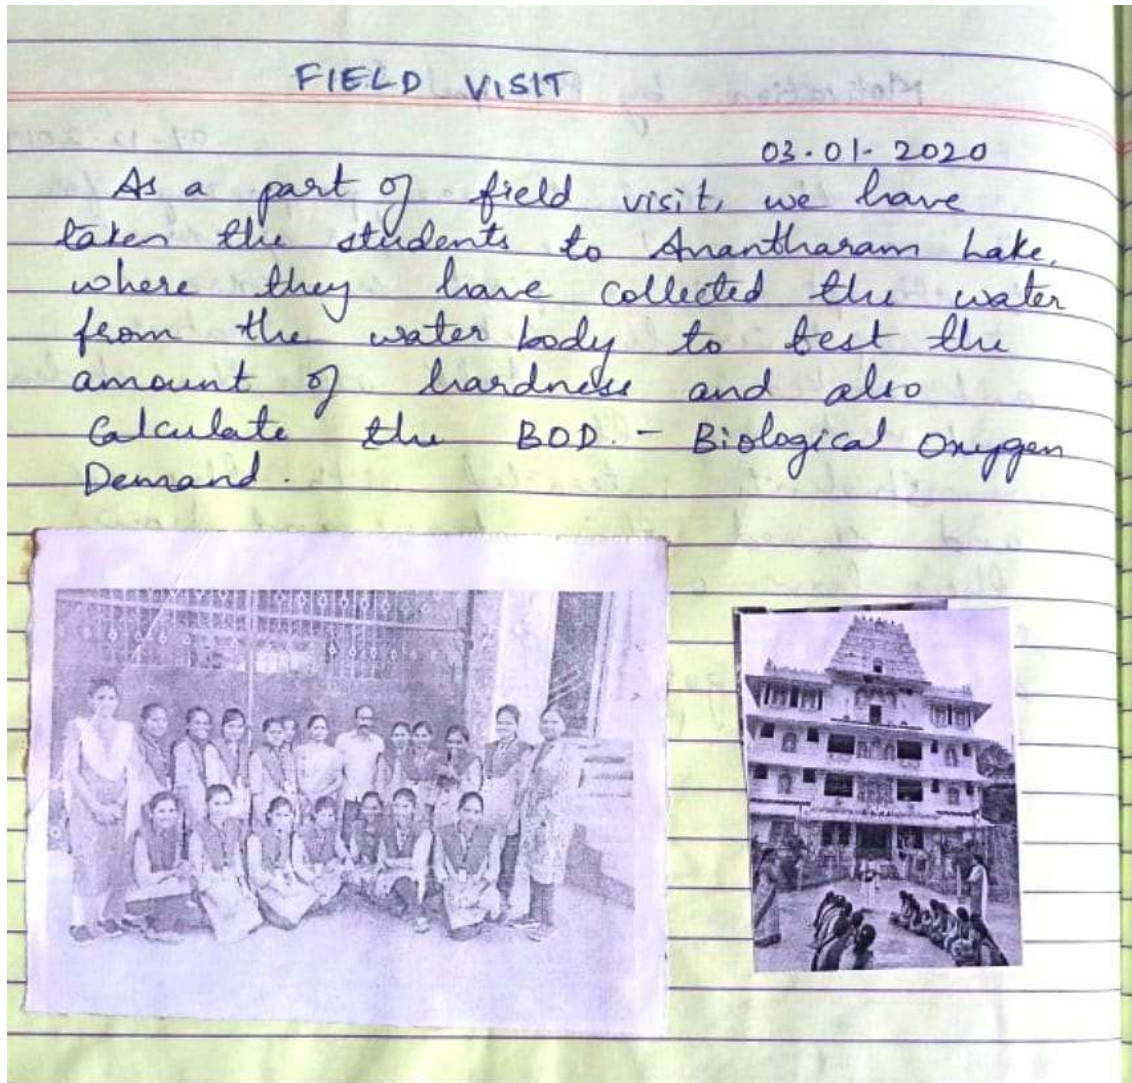 FIELD VISIT
03-01-2020
As a part of field visit, we have
taken the students to Anantharam Lake,
where they have collected the water
from the water body to test the
amount of hardness and also
Calculate the BOD. - Biological Oxygen
Demand.